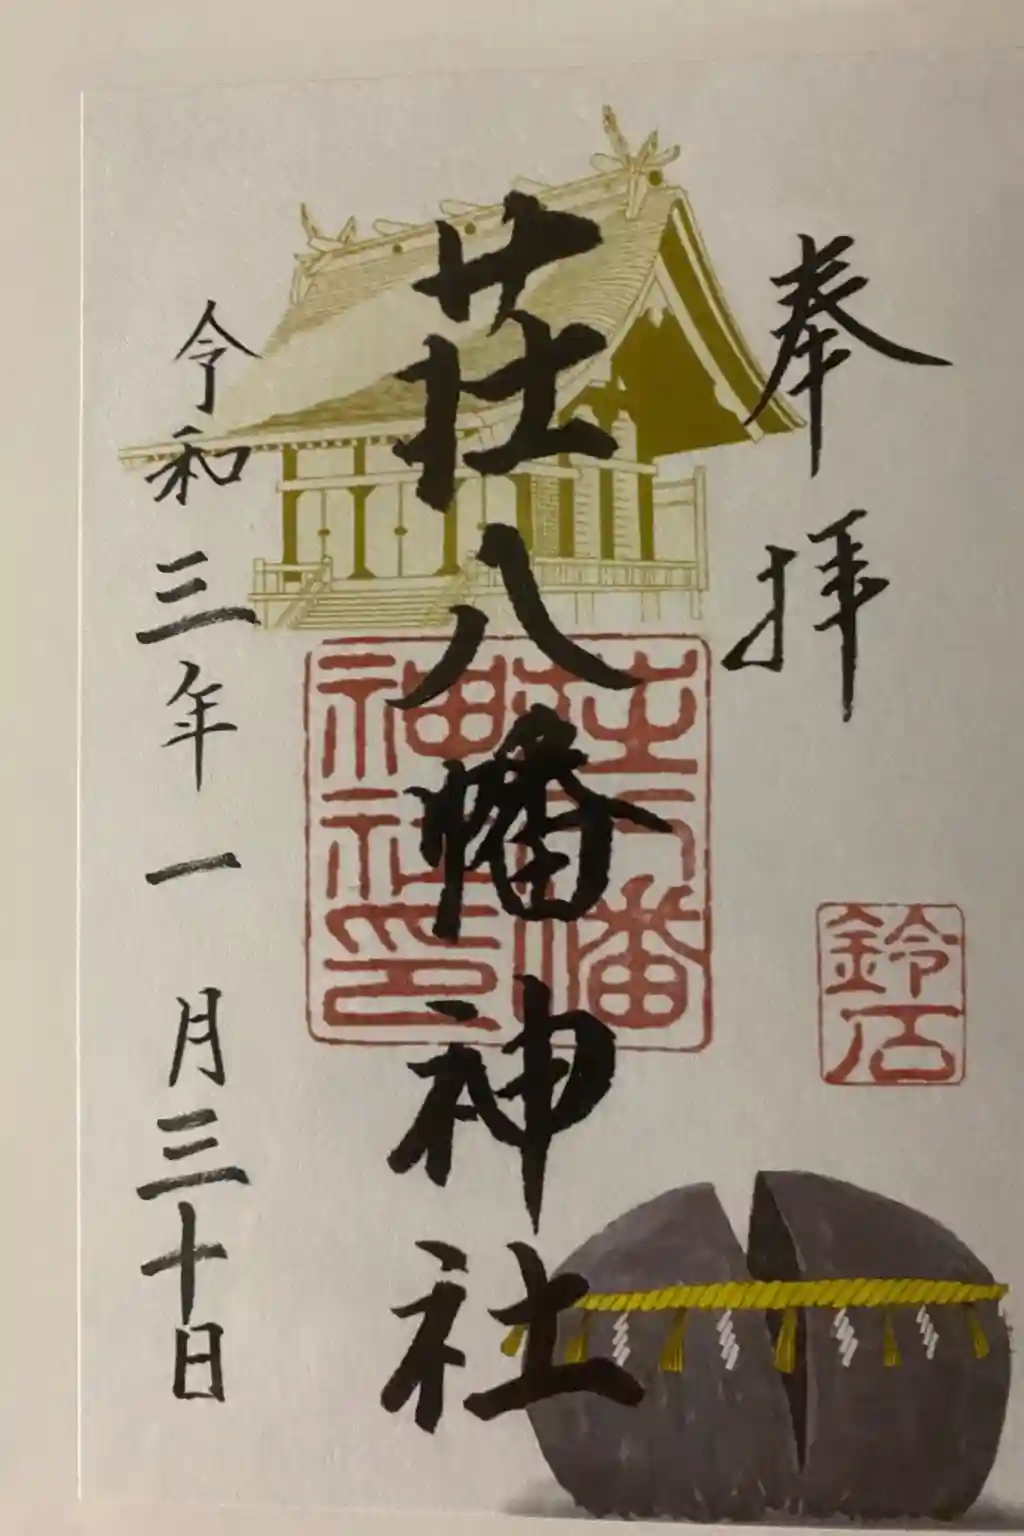 奉拝
鈴石
荘八幡神社
荘八幡神社印
令和三年一月三十日